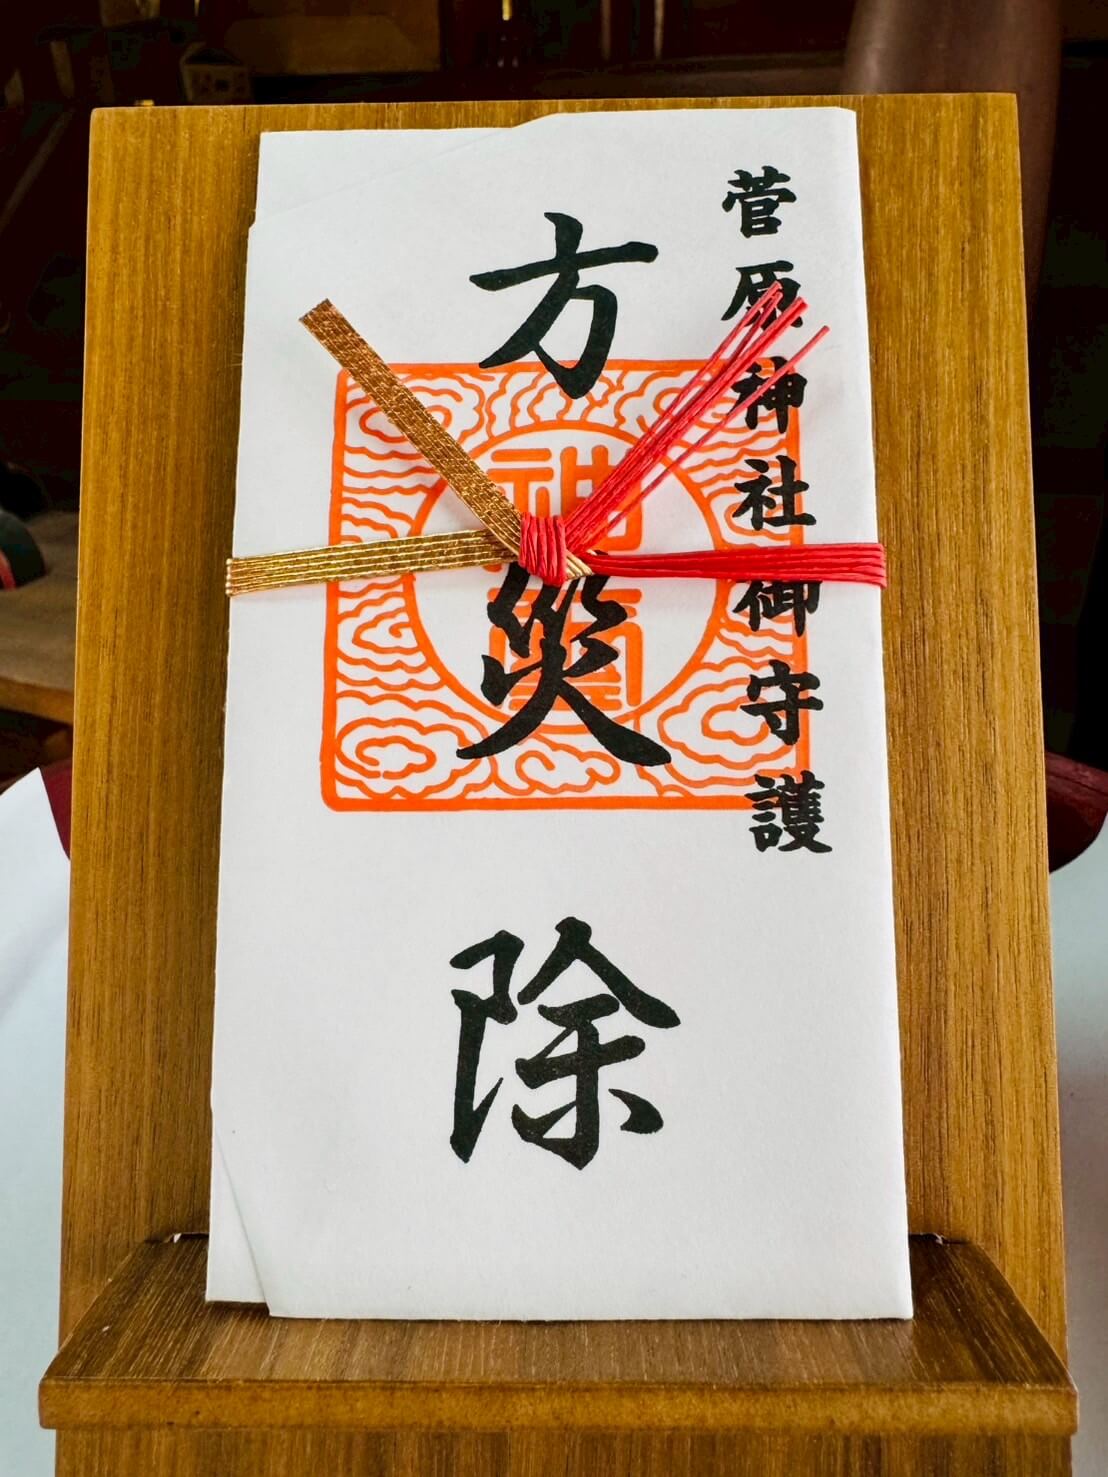 菅原神社御守護
方災除
神璽